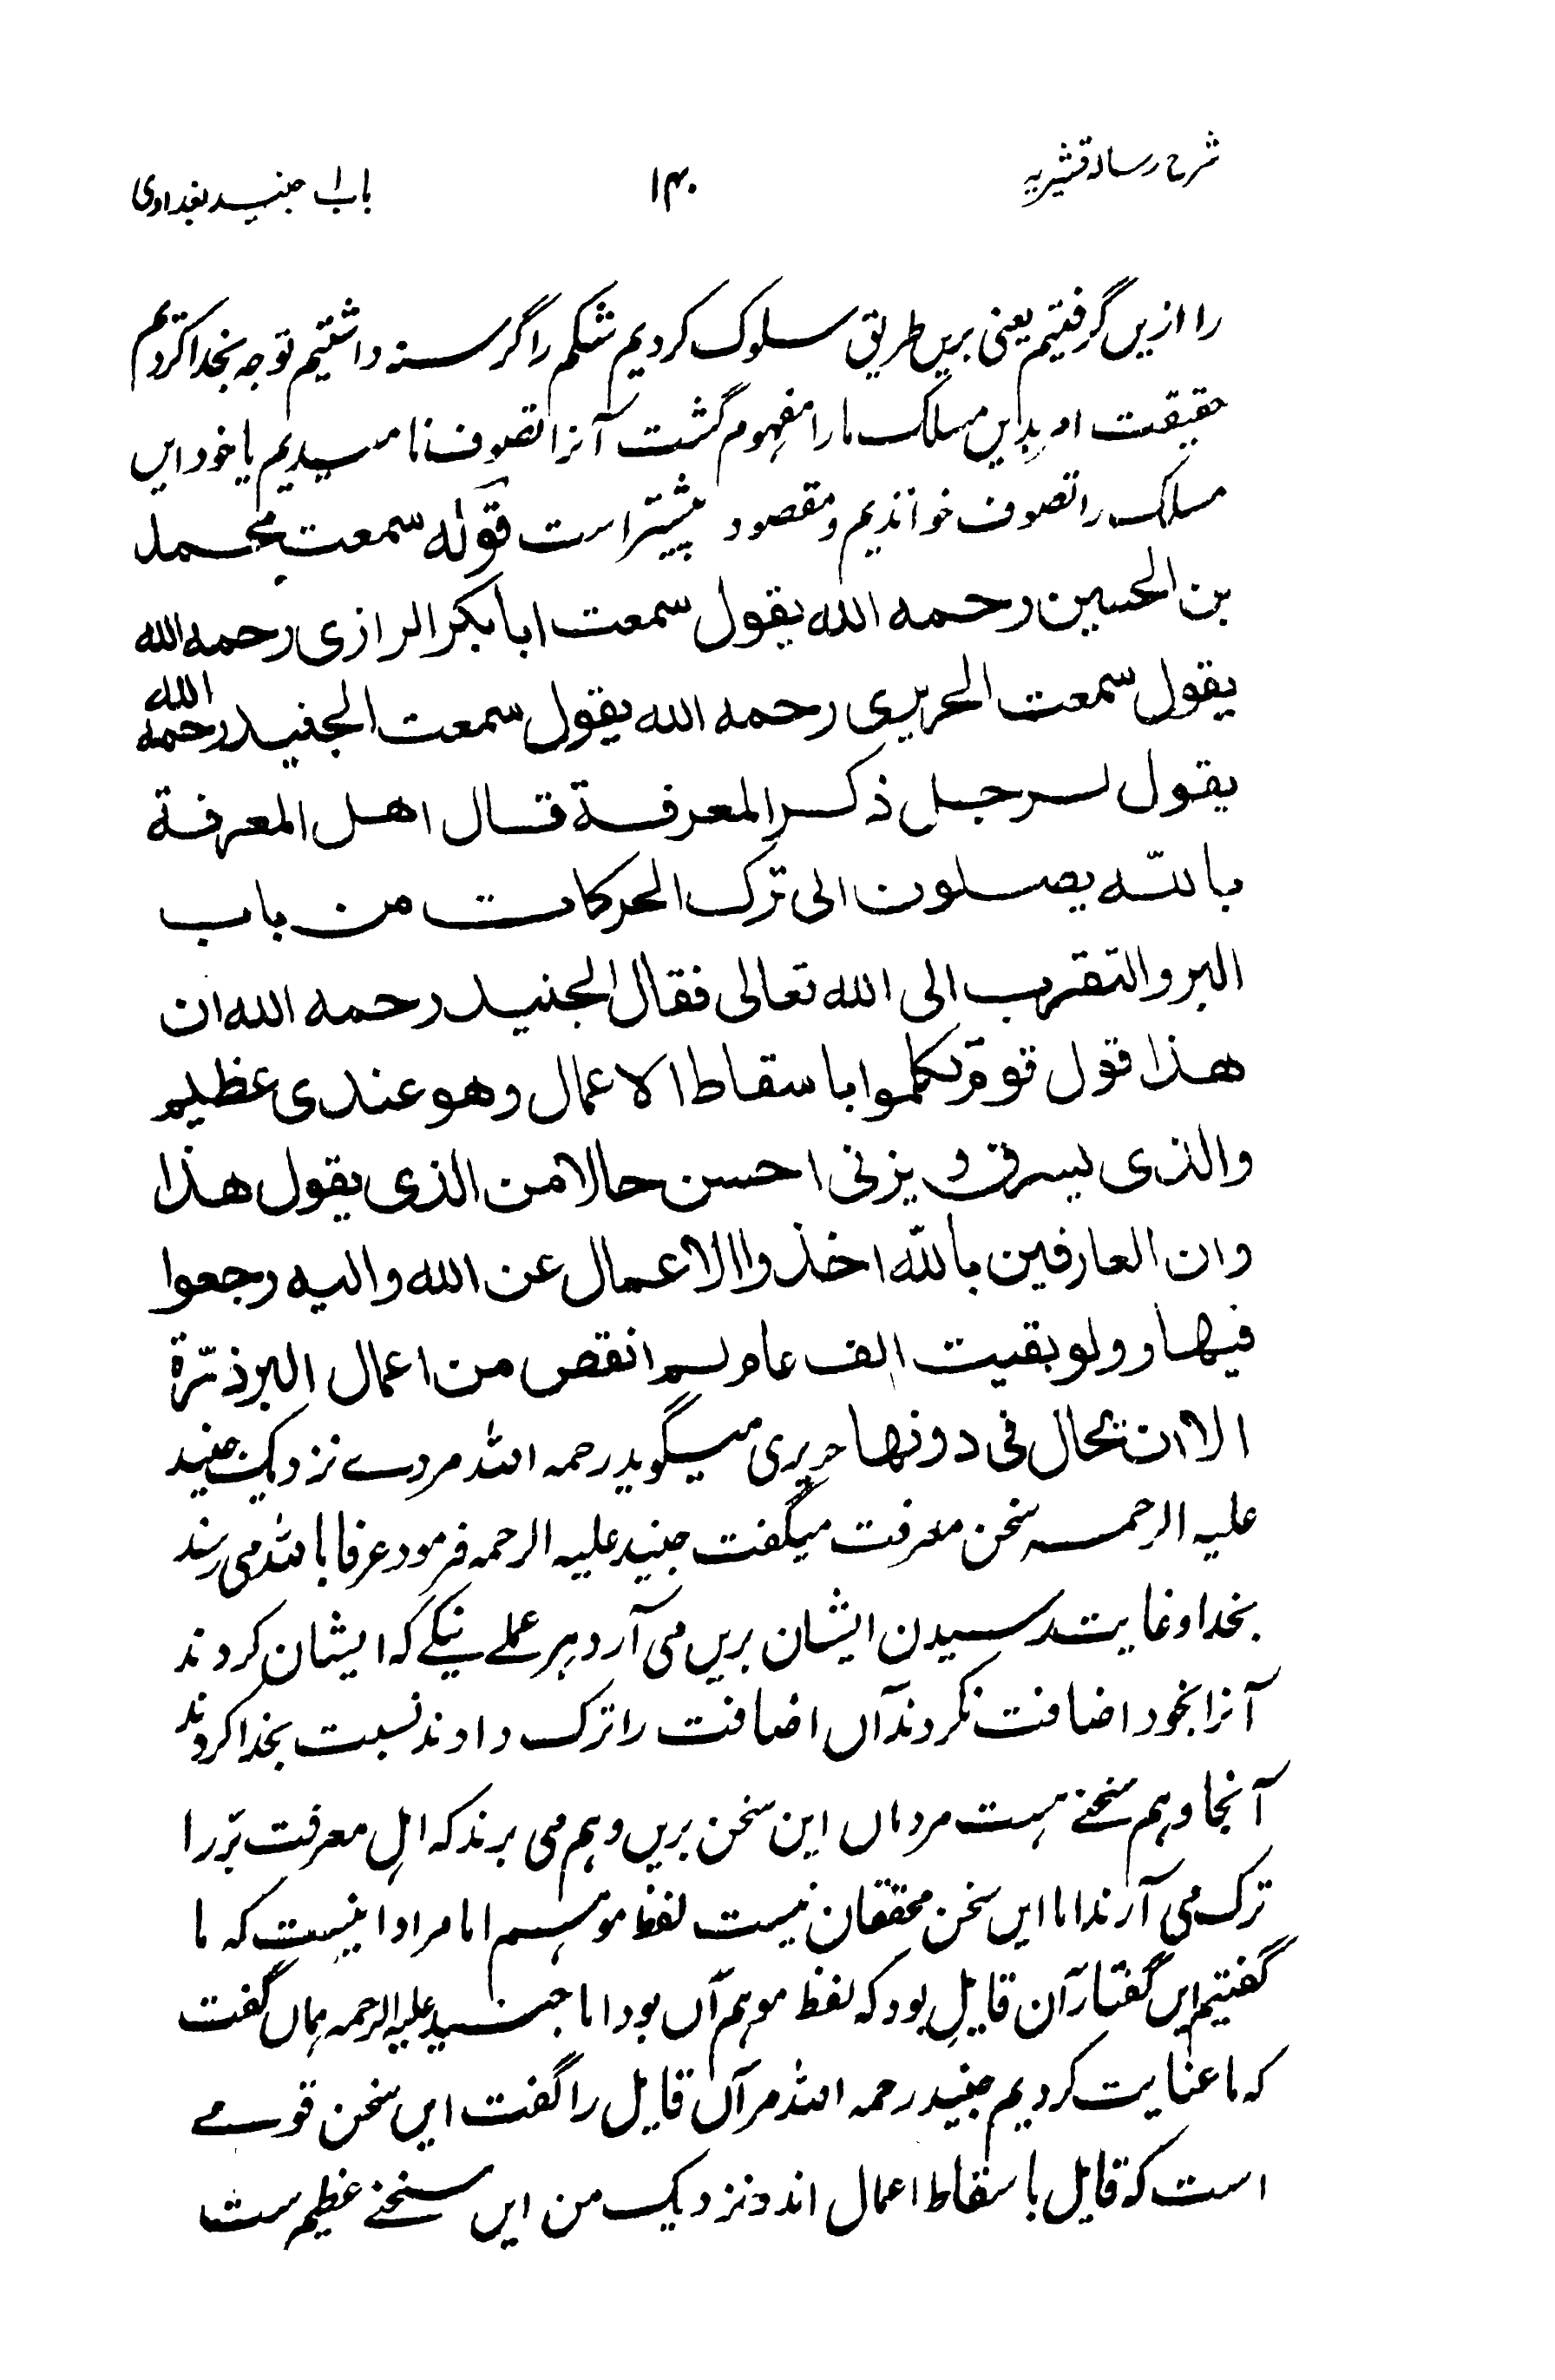 شرح رسالہ قشیریہ
۱۴۰
باب جنید بغدادی
را ازیں گرفتیم یعنی بریں طریق سلوک کردیم شکم را گرسنہ داشتیم توجہ بخدا کردیم
حقیقت او بدین مسلک ما را مفہوم گشت آنرا تصوف نامیدیم یا خود ایں
مسلک را تصوف خواندیم و مقصود پیشتر است قولہ سمعت محمد
بن الحسین رحمہ اللہ یقول سمعت ابا بکر الرازی رحمہ اللہ
یقول سمعت الحریری رحمہ اللہ یقول سمعت الجنید رحمہ اللہ
یقول لرجل ذکر المعرفة قال اهل المعرفة
باللّٰہ یصلون الی ترک الحرکات من باب
البر والتقرب الی اللہ تعالی فقال الجنید رحمہ اللہ ان
هذا قول قوم تکلموا باسقاط الاعمال وهو عندی عظیم
والذی یسرق و یزنی احسن حالا من الذی یقول هذا
وان العارفین باللّٰہ اخذوا الاعمال عن اللہ والیہ رجعوا
فیها و ولو بقیت الف عام لم انقص من اعمال البر ذرّة
الا ان یحال فی دونها حریری میگوید رحمہ اللہ مردے نزدیک جنید
علیہ الرحمہ سخن معرفت میگفت جنید علیہ الرحمہ فرمود عرفا باللہ می رسند
بخدا و غایت رسیدن ایشان بریں می آرد ہر عملے نیکے کہ ایشان کردند
آنرا بخود اضافت نکردند آں اضافت را ترک دادند نسبت بخدا کردند
آنجا وہم سخنے ہست مردماں این سخن بریں وہم می برند کہ اہل معرفت بر را
ترک می آرند اما ایں سخن محققان نیست لفظ موہم اما مراد اینست کہ ما
گفتیم ایں گفتار آن قایل بود کہ لفظ موہم آں بود اما جنید علیہ الرحمہ ہماں گفت
کہ ما عنایت کردیم جنید رحمہ اللہ مر آں قایل را گفت ایں سخن قومے
است کہ قایل باسقاط اعمال اند و نزدیک من ایں سخنے عظیم ست